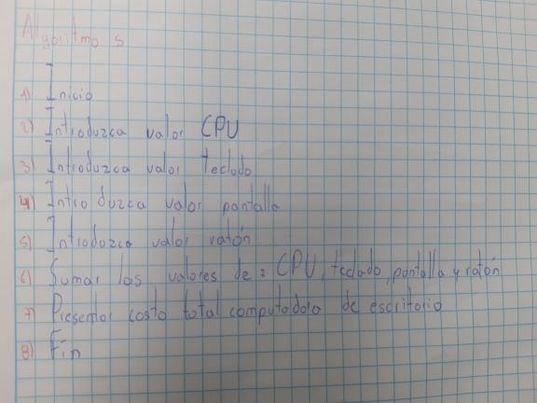 Algoritmo s
1) Inicio
2) Introduzca valor CPU
3) Introduzca valor teclado
4) Introduzca valor pantalla
5) Introduzca valor ratón
6) Sumar los valores de: CPU, teclado, pantalla y ratón
7) Presentar costo total computadora de escritorio
8) Fin